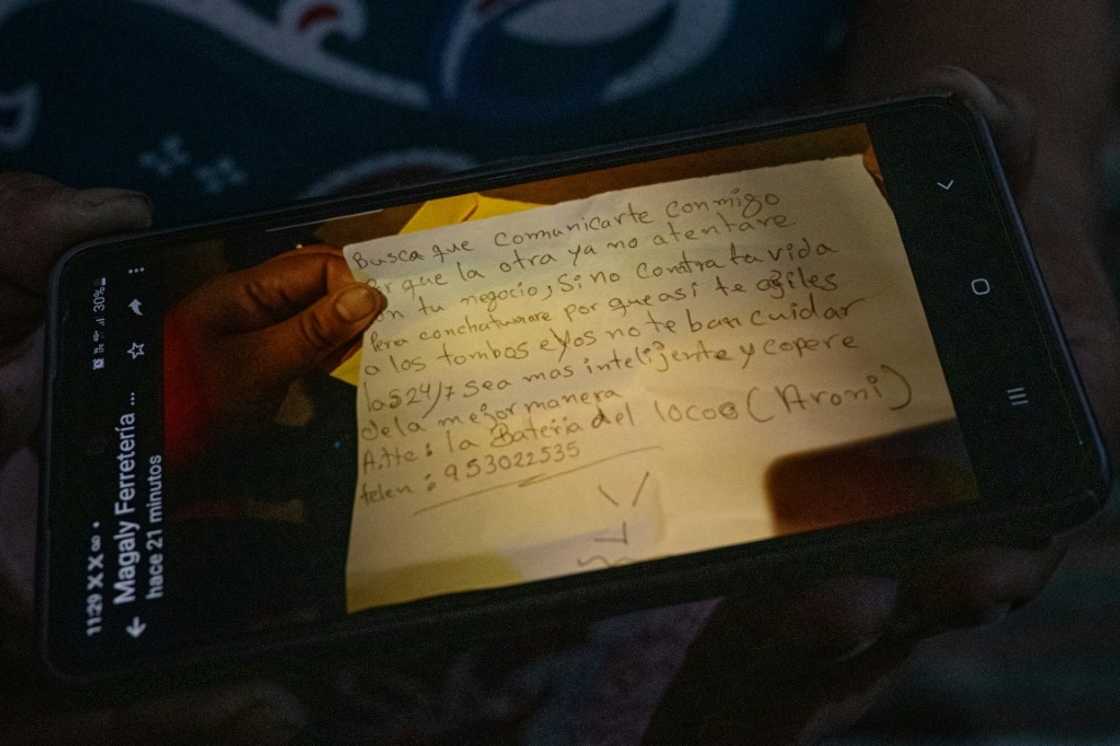 11:29 X X ∞ •
30%
Magaly Ferretería ...
hace 21 minutos
Busca que comunicarte conmigo
que la otra ya no atentare
tu negocio, sino contra ta vida
conchatumare por que asi te agiles
a los tombos eyos no te ban cuidar
las 24/7 sea mas intelijente y copere
dela mejor manera
Atte: la Bateria del locoo (Aroni)
telen: 953022535